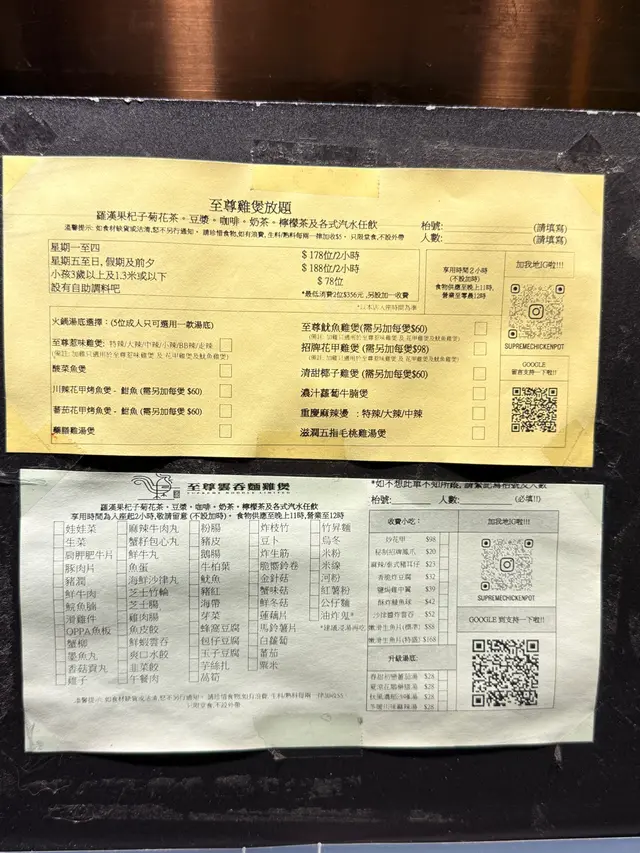 至尊雞煲放題
羅漢果杞子菊花茶。豆漿。咖啡。奶茶。檸檬茶及各式汽水任飲
溫馨提示: 如食材缺貨或沽清,恕不另行通知。 請珍惜食物,如有浪費,生料/熟料每兩一律加收$5。 只限堂食,不設外帶
枱號: (請填寫)
人數: (請填寫)
星期一至四 $178位/2小時
星期五至日, 假期及前夕 $188位/2小時
小孩3歲以上及1.3米或以下 $78位
設有自助調料吧 *最低消費2位$356元, 另股加一收費
*以本店入座時間為準
享用時間2小時
(不設加時)
食物供應至晚上11時,
營業至零晨12時
加我地IG啦!!!
SUPREMECHICKENPOT
GOOGLE
留言支持一下啦!!
火鍋湯底選擇：(5位成人只可選用一款湯底)
至尊惹味雞煲: 特辣/大辣/中辣/小辣/BB辣/走辣
酸菜魚煲
川辣花甲烤魚煲 - 鯰魚 (需另加每煲 $60)
蕃茄花甲烤魚煲 - 鯰魚 (需另加每煲 $60)
藥膳雞湯煲
至尊魷魚雞煲(需另加每煲$60)
招牌花甲雞煲(需另加每煲$98)
清甜椰子雞煲 (需另加每煲$60)
濃汁蘿蔔牛腩煲
重慶麻辣燙 ：特辣/大辣/中辣
滋潤五指毛桃雞湯煲
至尊雲吞麵雞煲
SUPREME NOODLE RESTAURANT LIMITED
羅漢果杞子菊花茶。豆漿。咖啡。奶茶。檸檬茶及各式汽水任飲
享用時間為入座起2小時,敬請留意 (不設加時)。 食物供應至晚上11時,營業至12時
枱號: 人數: (必填!!)
娃娃菜 麻辣牛肉丸 粉腸 炸枝竹 竹昇麵
生菜 蟹籽包心丸 豬皮 豆卜 烏冬
肩胛肥牛片 鮮牛丸 鵝腸 炸生筋 米粉
豚肉片 魚蛋 牛柏葉 脆漿鈴卷 米線
豬潤 海鮮沙津丸 魷魚 金針菇 河粉
鮮牛肉 芝士竹輪 豬紅 蟹味菇 紅薯粉
鯇魚腩 芝士腸 海帶 鮮冬菇 公仔麵
滑雞件 雞肉腸 芽菜 蓮藕片 油炸鬼*
OPPA魚板 魚皮餃 蜂窩豆腐 馬鈴薯片
蟹柳 鮮蝦雲吞 包仔豆腐 白蘿蔔
墨魚丸 爽口水餃 玉子豆腐 蕃茄
香菇貢丸 韭菜餃 芋絲扎 粟米
雞子 午餐肉 萵筍
溫馨提示: 如食材缺貨或沽清,恕不另行通知。 請珍惜食物,如有浪費, 生料/熟料每兩一律加收$5
只限堂食,不設外帶
收費小吃：
炒花甲 $98
秘製招牌鳳爪 $20
麻辣/泰式豬耳仔 $23
香脆炸豆腐 $32
鹽焗雞中翼 $39
酥炸鯪魚球 $42
沙律醬炸雲吞 $52
嫩滑生魚片(標準) $88
嫩滑生魚片(特選) $168
升級湯底:
$28
$28
$28
$28
加我地IG啦!!!
SUPREMECHICKENPOT
GOOGLE 到支持一下啦!!